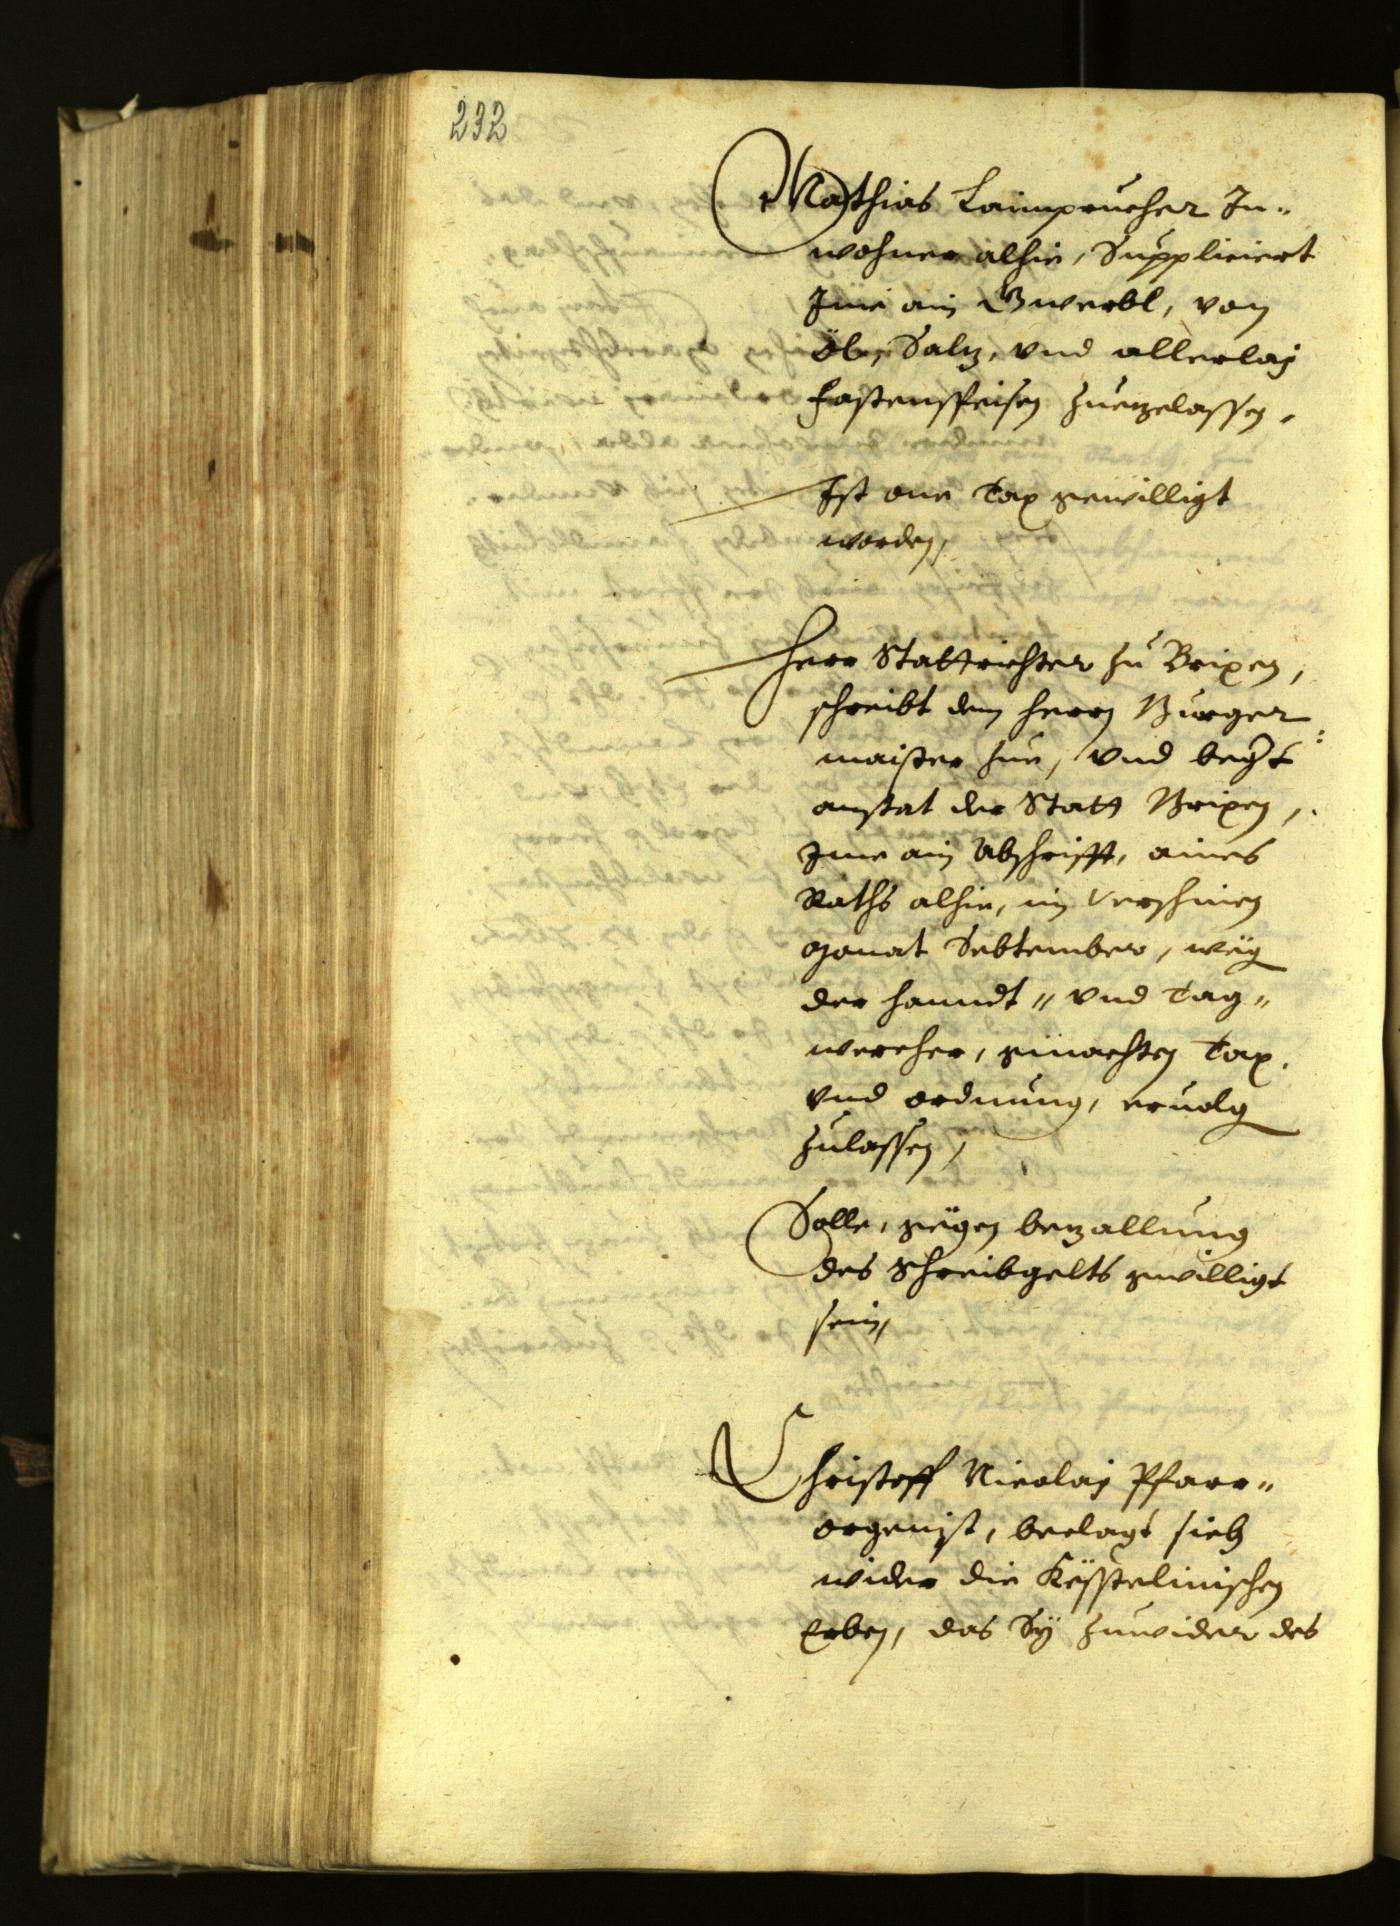 232
Mathias Laimprucher In¬
wohner alhie, Suppliciert
Ime ain Gwerbl, von
Öl, Saltz, vnd allerlaj
fastenspeisen zuezelassen,
Ist one Tax gewilligt
worden,
Herr Stattrichter zu Brixen,
schreibt dem herrn Burger¬
maister zue, vnd begert
anstat der Statt Brixen,
Ime ain Abschrifft, aines
Raths alhie, im verschinen
Monat Sebtember, weg
der Handt¬ vnd Tag¬
wercher, gemachten Tax.
vnd ordnung, ervolg
zulassen,
Solle, gegen bezallung
des schreibgelts gwilligt
sein,
Christoff Nicolaj Pfarr¬
organist, beclagt sich
wider die Késstelinischen
Erben, das Sÿ zuwider des